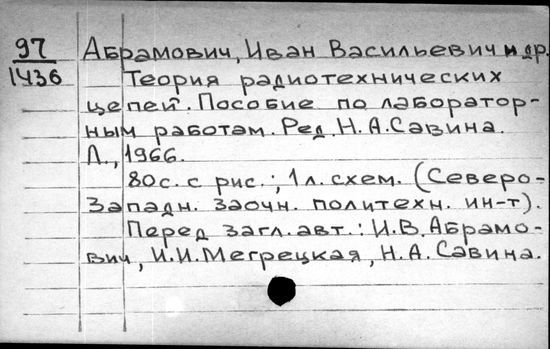 97 Абрамович, Иван Васильевич и др.
1436 Теория радиотехнических
цепей. Пособие по лаборатор-
ным работам. Ред. Н.А.Савина.
Л., 1966.
80с. с рис.; 1л. схем. (Северо-
Западн. заочн. политехн. ин-т).
Перед загл. авт.: И.В. Абрамо-
вич, И.И.Мегрецкая, Н.А.Савина.